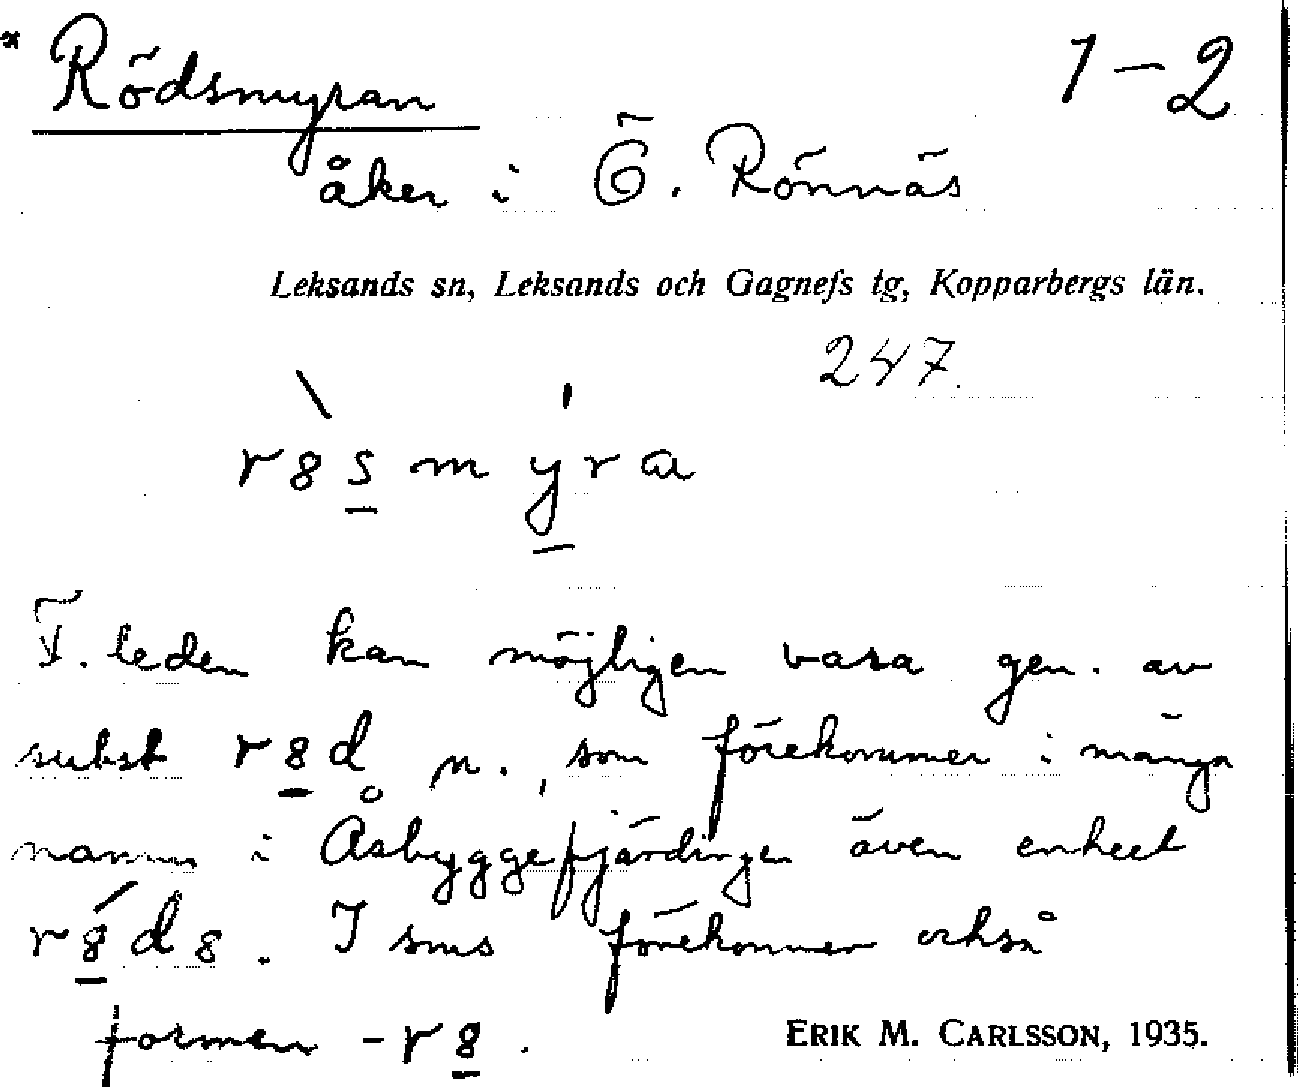 * Rödsmyran 1-2
åker i Ö. Rönnäs
Leksands sn, Leksands och Gagnefs tg, Kopparbergs län.
247.
r8s̲mýr̲a
F. leden kan möjligen vara gen. av
subst r8̲d n., som förekommer i många
namn i Åsbyggefjärdingen även enkelt
r8̲́d8. I sms förekommer också
formen -r8̲.
ERIK M. CARLSSON, 1935.